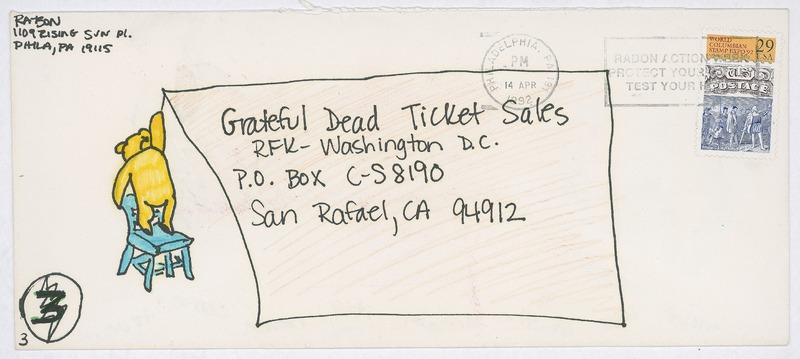 RATSON
1109 RISING SUN Pl.
PHILA, PA 19115
PHILADELPHIA, PA 191
PM
14 APR
1992
RADON ACTION WEEK
PROTECT YOUR
TEST YOUR H
WORLD
COLUMBIAN
STAMP EXPO '92
29
USA
US
POSTAGE
Grateful Dead Ticket Sales
RFK- Washington D.C.
P.O. BOX C-S8190
San Rafael, CA 94912
3
3